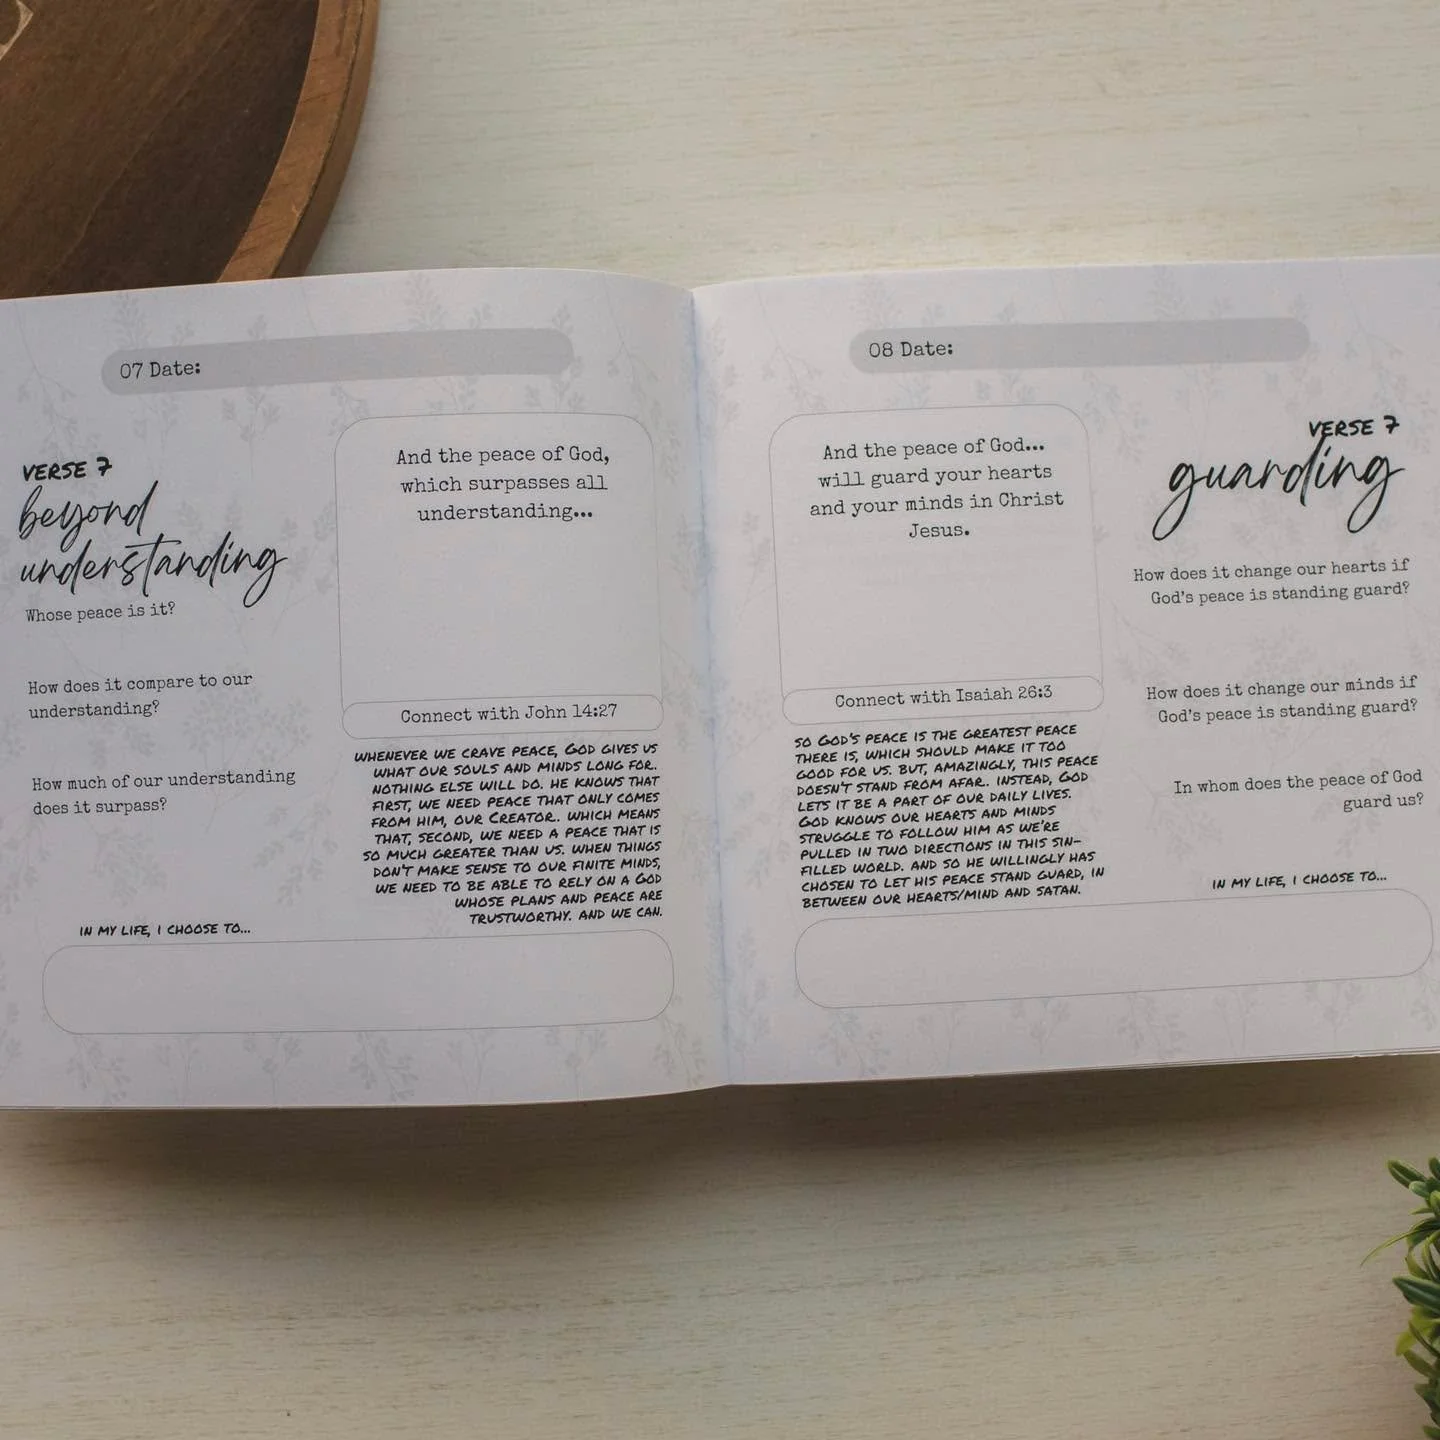 07 Date:
VERSE 7
beyond
understanding
Whose peace is it?
How does it compare to our
understanding?
How much of our understanding
does it surpass?
IN MY LIFE, I CHOOSE TO...
And the peace of God,
which surpasses all
understanding...
Connect with John 14:27
WHENEVER WE CRAVE PEACE, GOD GIVES US
WHAT OUR SOULS AND MINDS LONG FOR.
NOTHING ELSE WILL DO. HE KNOWS THAT
FIRST, WE NEED PEACE THAT ONLY COMES
FROM HIM, OUR CREATOR.. WHICH MEANS
THAT, SECOND, WE NEED A PEACE THAT IS
SO MUCH GREATER THAN US. WHEN THINGS
DON'T MAKE SENSE TO OUR FINITE MINDS,
WE NEED TO BE ABLE TO RELY ON A GOD
WHOSE PLANS AND PEACE ARE
TRUSTWORTHY. AND WE CAN.
08 Date:
And the peace of God...
will guard your hearts
and your minds in Christ
Jesus.
Connect with Isaiah 26:3
SO GOD'S PEACE IS THE GREATEST PEACE
THERE IS, WHICH SHOULD MAKE IT TOO
GOOD FOR US. BUT, AMAZINGLY, THIS PEACE
DOESN'T STAND FROM AFAR.. INSTEAD, GOD
LETS IT BE A PART OF OUR DAILY LIVES.
GOD KNOWS OUR HEARTS AND MINDS
STRUGGLE TO FOLLOW HIM AS WE'RE
PULLED IN TWO DIRECTIONS IN THIS SIN-
FILLED WORLD. AND SO HE WILLINGLY HAS
CHOSEN TO LET HIS PEACE STAND GUARD, IN
BETWEEN OUR HEARTS/MIND AND SATAN.
VERSE 7
guarding
How does it change our hearts if
God's peace is standing guard?
How does it change our minds if
God's peace is standing guard?
In whom does the peace of God
guard us?
IN MY LIFE, I CHOOSE TO...